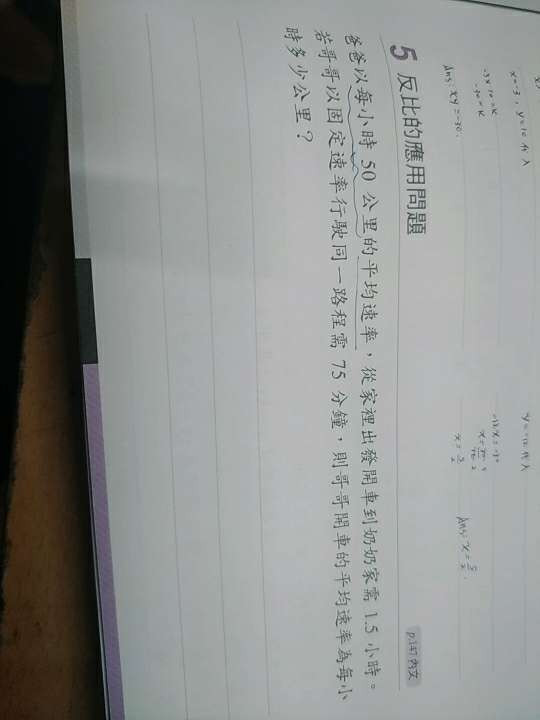 x=-3, y=10 代入
-3×10=k
-30=k
Ans: xy=-30.
y=-12代入
Ans: x=5/2.
5 反比的應用問題
p.147 內文
爸爸以每小時 50 公里的平均速率，從家裡出發開車到奶奶家需 1.5 小時。
若哥哥以固定速率行駛同一路程需 75 分鐘，則哥哥開車的平均速率為每小
時多少公里？